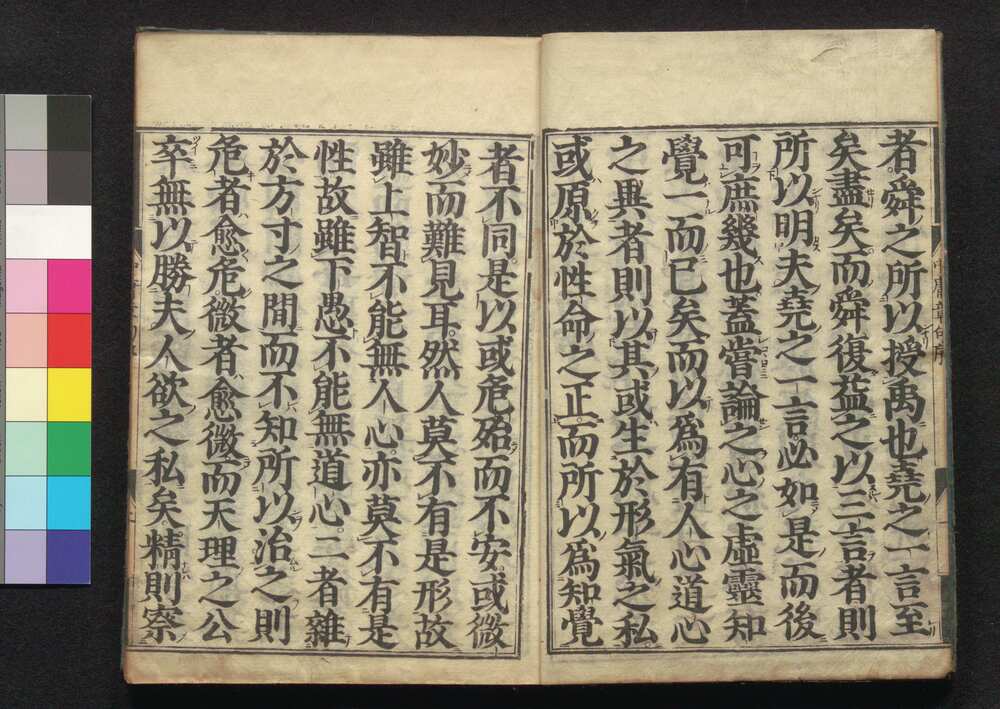 者舜之所以授禹也堯之一言至
矣盡矣而舜復益之以三言者則
所以明夫堯之一言必如是而後
可庶幾也蓋嘗論之心之虛靈知
覺一而已矣而以爲有人心道心
之異者則以其或生於形氣之私
或原於性命之正而所以爲知覺
者不同是以或危殆而不安或微
妙而難見耳然人莫不有是形故
雖上智不能無人心亦莫不有是
性故雖下愚不能無道心二者雜
於方寸之間而不知所以治之則
危者愈危微者愈微而天理之公
卒無以勝夫人欲之私矣精則察